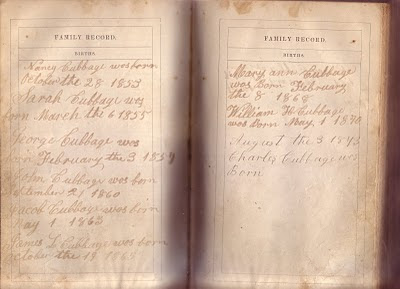 FAMILY RECORD.
BIRTHS.
Nancy Cubbage was born
October the 28 1853
Sarah Cubbage was
born March the 6 1855
George Cubbage was
February the 3
Cubbage was born
1860
Jacob Cubbage was born
1 1863
James L Cubbage was born
October the 18
FAMILY RECORD.
BIRTHS.
Mary ann Cubbage
was Born February
the 8 1868
William H Cubbage
was Born May 1
August the 3
Charles Cubbage was
Born